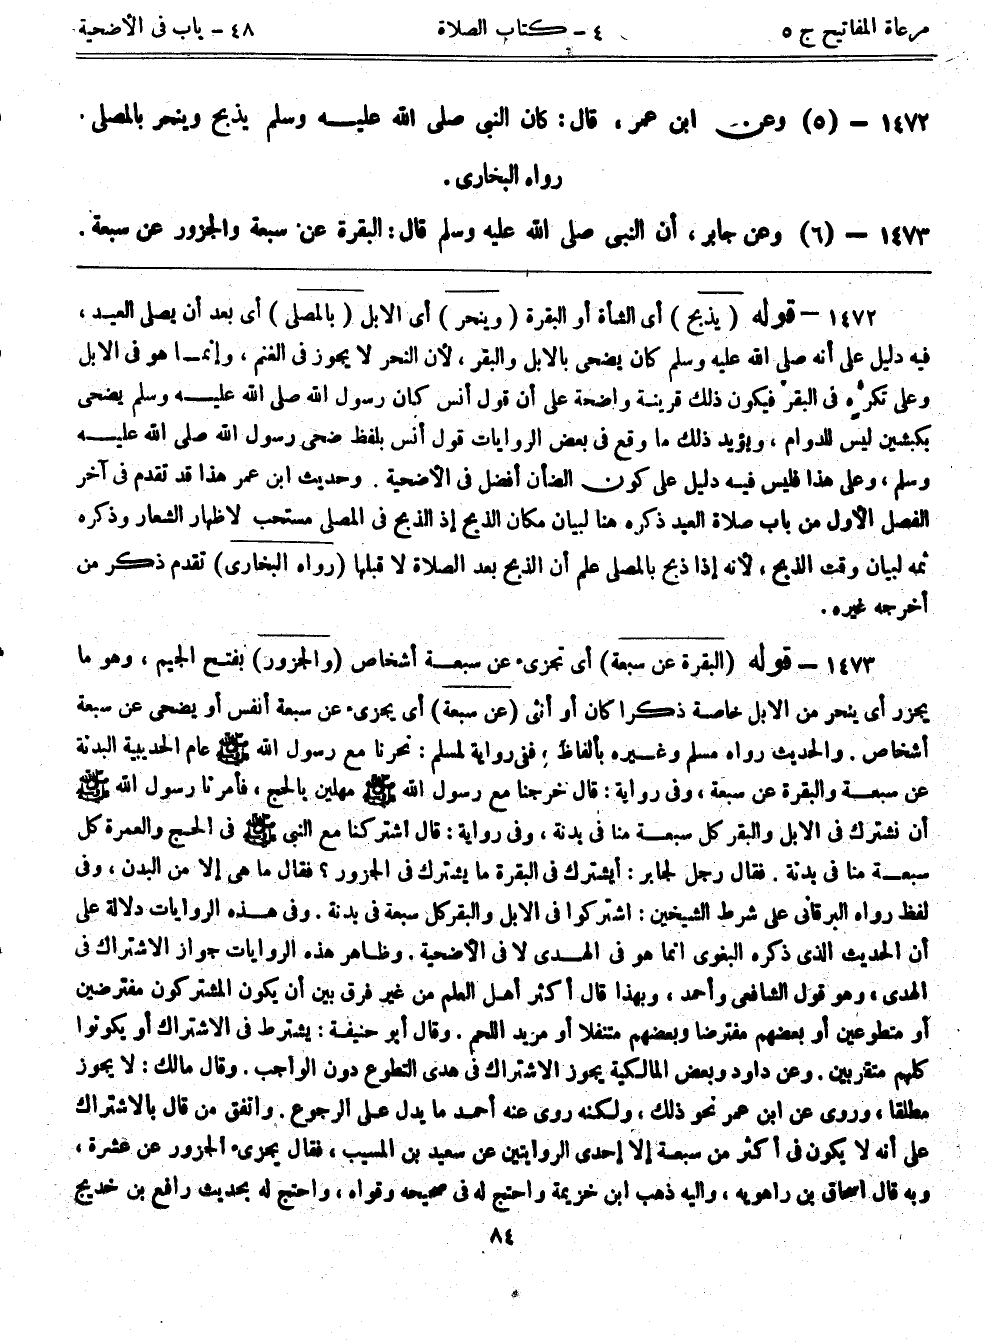 مرعاة المفاتيح ج ٥ ٤ – كتاب الصلاة ٤٨ – باب فى الأضحية
١٤٧٢ – (٥) وعن ابن عمر، قال: كان النبى صلى الله عليه وسلم يذبح وينحر بالمصلى.
رواه البخارى.
١٤٧٣ – (٦) وعن جابر، أن النبى صلى الله عليه وسلم قال: البقرة عن سبعة والجزور عن سبعة.
١٤٧٢ – قوله (يذبح) أى الشاة أو البقرة (وينحر) أى الابل (بالمصلى) أى بعد أن يصلى العيد،
فيه دليل على أنه صلى الله عليه وسلم كان يضحى بالابل والبقر، لأن النحر لا يجوز فى الغنم، وإنما هو فى الابل
وعلى تكره فى البقر فيكون ذلك قرينة واضحة على أن قول أنس كان رسول الله صلى الله عليه وسلم يضحى
بكبشين ليس للدوام، ويؤيد ذلك ما وقع فى بعض الروايات قول أنس بلفظ ضحى رسول الله صلى الله عليه
وسلم، وعلى هذا فليس فيه دليل على كون الضأن أفضل فى الأضحية. وحديث ابن عمر هذا قد تقدم فى آخر
الفصل الأول من باب صلاة العيد ذكره هنا لبيان مكان الذبح إذ الذبح فى المصلى مستحب لاظهار الشعار وذكره
ثمه لبيان وقت الذبح، لأنه إذا ذبح بالمصلى علم أن الذبح بعد الصلاة لا قبلها (رواه البخارى) تقدم ذكر من
أخرجه غيره.
١٤٧٣ – قوله (البقرة عن سبعة) أى تجزىء عن سبعة أشخاص (والجزور) بفتح الجيم، وهو ما
يجزر أى ينحر من الابل خاصة ذكرا كان أو أنثى (عن سبعة) أى يجزىء عن سبعة أنفس أو يضحى عن سبعة
أشخاص. والحديث رواه مسلم وغيره بألفاظ، ففى رواية لمسلم: نحرنا مع رسول الله ﷺ عام الحديبية البدنة
عن سبعة والبقرة عن سبعة، وفى رواية: قال خرجنا مع رسول الله ﷺ مهلين بالحج، فأمرنا رسول الله ﷺ
أن نشترك فى الابل والبقر كل سبعة منا فى بدنة، وفى رواية: قال اشتركنا مع النبى ﷺ فى الحج والعمرة كل
سبعة منا فى بدنة. فقال رجل لجابر: أيشترك فى البقرة ما يشترك فى الجزور؟ فقال ما هى إلا من البدن، وفى
لفظ رواه البرقانى على شرط الشيخين: اشتركوا فى الابل والبقر كل سبعة فى بدنة. وفى هذه الروايات دلالة على
أن الحديث الذى ذكره البغوى انما هو فى الهدى لا فى الأضحية. وظاهر هذه الروايات جواز الاشتراك فى
الهدى، وهو قول الشافعى وأحمد، وبهذا قال أكثر أهل العلم من غير فرق بين أن يكون المشتركون مفترضين
أو متطوعين أو بعضهم مفترضا وبعضهم متنفلا أو مريد اللحم. وقال أبو حنيفة: يشترط فى الاشتراك أو يكونوا
كلهم متقربين. وعن داود وبعض المالكية يجوز الاشتراك فى هدى التطوع دون الواجب. وقال مالك: لا يجوز
مطلقا، وروى عن ابن عمر نحو ذلك، ولكنه روى عنه أحمد ما يدل على الرجوع. واتفق من قال بالاشتراك
على أنه لا يكون فى أكثر من سبعة إلا إحدى الروايتين عن سعيد بن المسيب، فقال يجزىء الجزور عن عشرة،
وبه قال اسحاق بن راهويه، واليه ذهب ابن خزيمة واحتج له فى صحيحه وقواه، واحتج له بحديث رافع بن خديج
٨٤